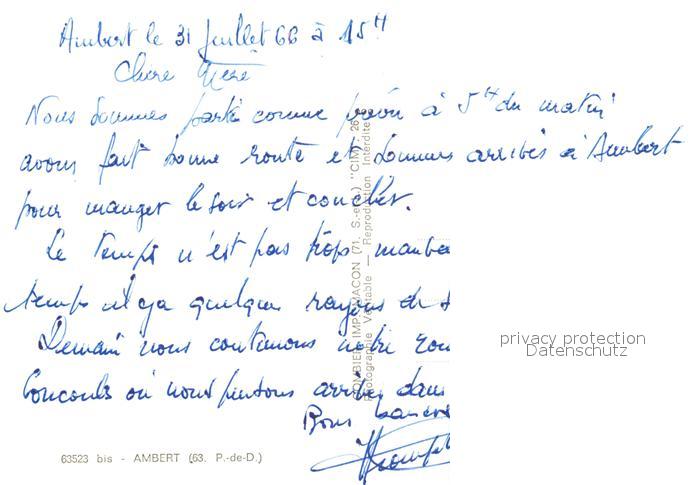 Ambert le 31 Juillet 66 à 15H
Chère Mère
Nous sommes partis comme prévu à 5H du matin
avons fait bonne route et sommes arrivés à Ambert
pour manger le soir et coucher.
Le temps n'est pas trop mauva
temps il y a quelques rayons de s
Demain nous continuons notre rou
où nous pensons arriver dans
Bons baisers
COMBIER IMP. MACON (71. S.-et-L.) "CIM" 26
Photographie Véritable — Reproduction Interdite
63523 bis - AMBERT (63. P.-de-D.)
privacy protection
Datenschutz